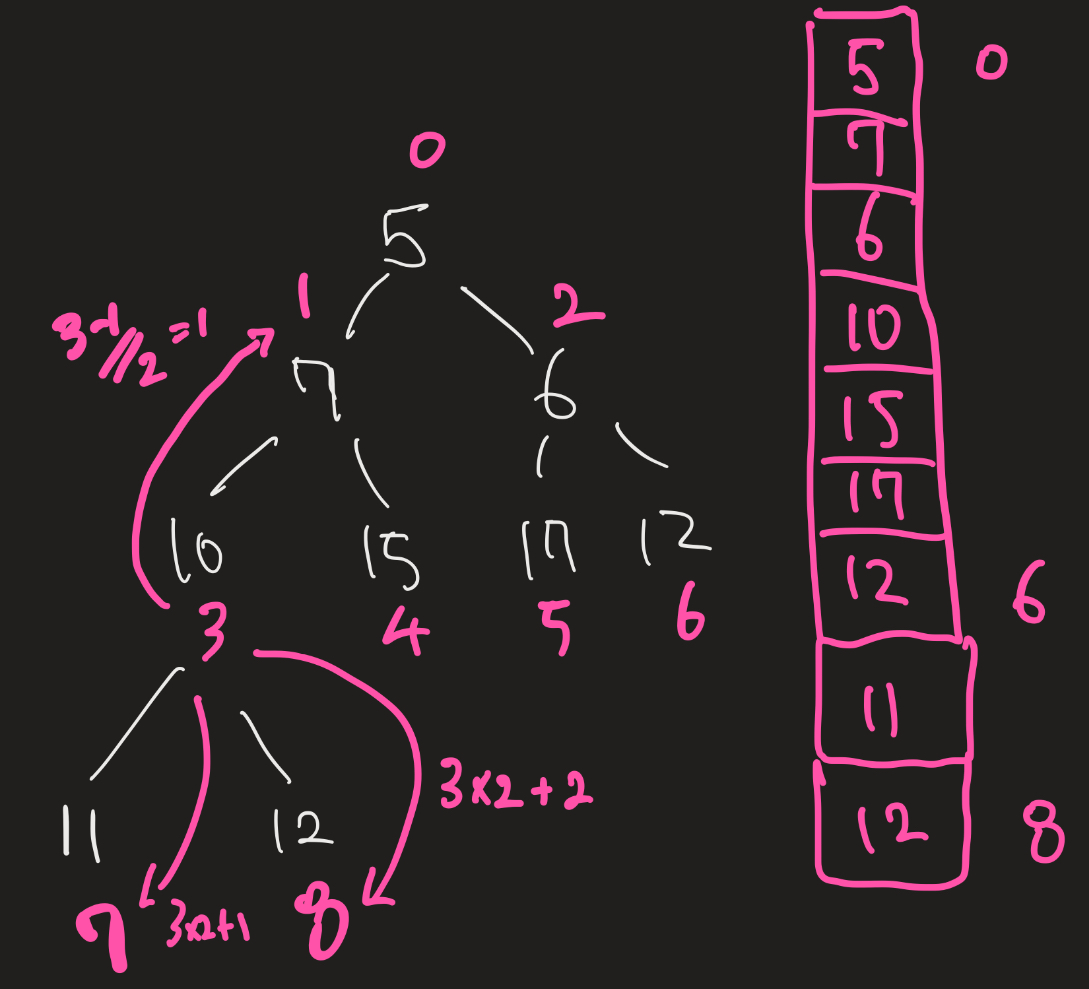 0
5
1
2
3-1//2=1
7
6
10
15
17
12
3
4
5
6
11
12
3×2+2
7
3×2+1
8
5
0
7
6
10
15
17
12
6
11
12
8